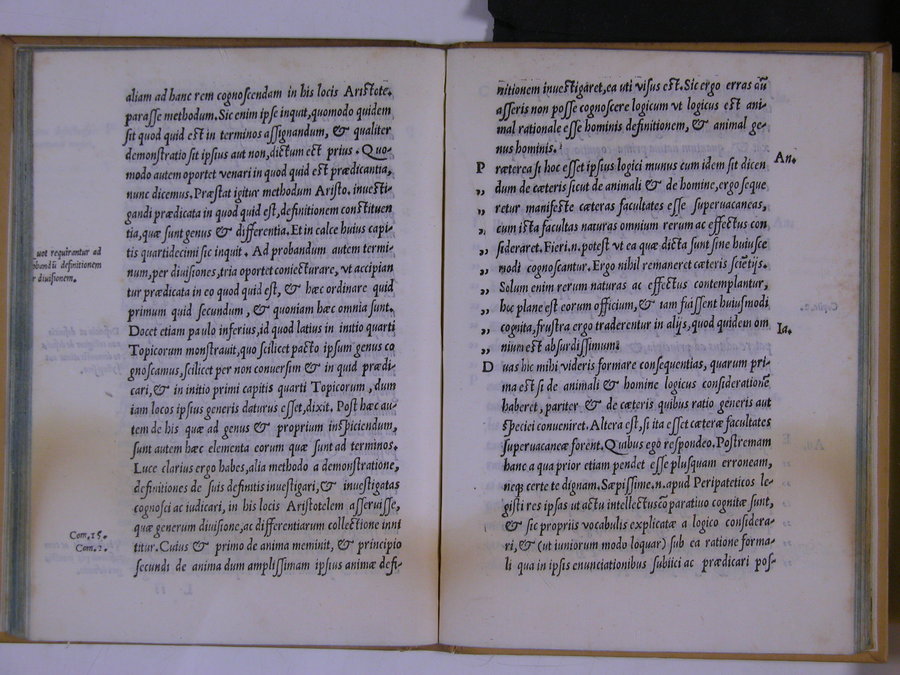 aliam ad hanc rem cognoscendam in his locis Aristete,
parasse methodum. Sic enim ipse inquit, quomodo quidem
sit quod quid est in terminos assignandum, & qualiter
demonstratio sit ipsius aut non, dictum est prius. Quo-
modo autem oportet venari in quod quid est prædicantia,
nunc dicemus. Præstat igitur methodum Aristo. inuesti-
gandi prædicata in quod quid est, definitionem constituen
tia, quæ sunt genus & differentia. Et in calce huius capi-
tis quartidecimi sic inquit. Ad probandum autem termi-
num, per diuisiones, tria oportet coniecturare, vt accipian
tur prædicata in eo quod quid est, & hæc ordinare quid
primum quid secundum, & quoniam hæc omnia sunt.
Docet etiam paulo inferius, id quod latius in initio quarti
Topicorum monstrauit, quo scilicet pacto ipsum genus co
gnoscamus, scilicet per non conuersim & in quid prædi-
cari, & in initio primi capitis quarti Topicorum, dum
iam locos ipsius generis daturus esset, dixit. Post hæc au-
tem de his quæ ad genus & proprium inspiciendum,
sunt autem hæc elementa corum quæ sunt ad terminos.
Luce clarius ergo habes, alia methodo a demonstratione,
definitiones de suis definitis inuestigari, & inuestigatas
cognosci ac iudicari, in his locis Aristotelem asseruisse,
quæ generum diuisione, ac differentiarum collectione inni
titur. Cuius & primo de anima meminit, & principio
secundi de anima dum amplissimam ipsius animæ defi-
uot requirantur ad
obandū definitionem
r diuisionem.
Com. 15.
Com. 2.
nitionem inuestigaret, ea uti visus est. Sic ergo erras aū
asseris non posse cognoscere logicum vt logicus est ani-
mal rationale esse hominis definitionem, & animal ge-
nus hominis.
An.
P ræterea si hoc esset ipsius logici munus cum idem sit dicen
„ dum de cæteris sicut de animali & de homine, ergo seque
„ retur manifeste cæteras facultates esse superuacaneas,
„ cum ista facultas naturas omnium rerum ac effectus con
„ sideraret. Fieri.n. potest vt ea quæ dicta sunt sine huiusce
„ modi cognoscantur. Ergo nihil remaneret cæteris scietijs.
„ Solum enim rerum naturas ac effectus contemplantur,
„ hoc plane est eorum officium, & tam fiassent huiusmodi
„ cognita, frustra ergo traderentur in alijs, quod quidem om
„ nium est absurdissimum.
Ia.
D uas hic mihi videris formare consequentias, quarum pri-
ma est si de animali & homine logicus considerationē
haberet, pariter & de cæteris quibus ratio generis aut
speciei conueniret. Altera est, si ita esset cæteræ facultates
superuacaneæ forent. Quibus ego respondeo. Postremam
hanc a qua prior etiam pendet esse plusquam erroneam,
neq; certe te dignam. Sæpissime.n. apud Peripateticos le-
gisti res ipsas ut actu intellectus cōparatiuo cognitæ sunt,
& sic propriis vocabulis explicatæ a logico considera-
ri, & (ut iuniorum modo loquar) sub ea ratione forma-
li qua in ipsis enunciationibus subiici ac prædicari pos-